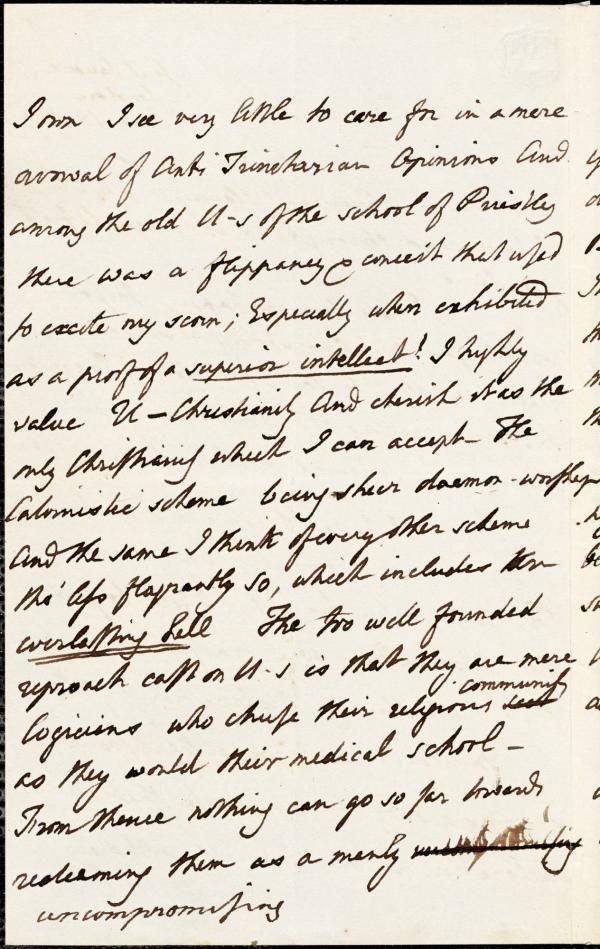 I own I see very little to care for in a mere
avowal of Anti Trinitarian Opinions And
among the old U-s of the school of Priestley
there was a flippancy & conceit that used
to excite my scorn; Especially when exhibited
as a proof of a superior intellect! I highly
value U-Christianity And cherish it as the
only Christianity which I can accept - The
Calvinistic scheme being sheer daemon-worship
And the same I think of every other scheme
tho' less flagrantly so, which includes
everlasting hell The too well founded
reproach cast on U-s is that they are mere
logicians who chuse their religious sect community
as they would their medical school -
From thence nothing can go so far towards
redeeming them as a manly
uncompromising